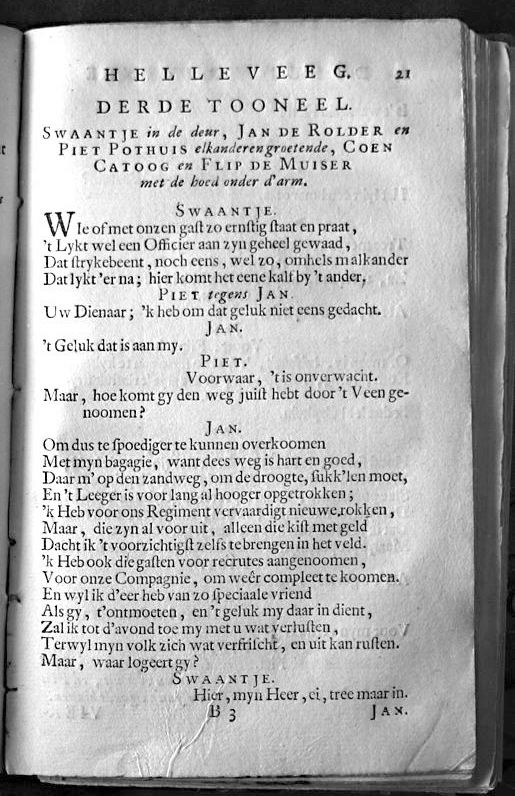 HELLEVEEG. 21
DERDE TOONEEL.
SWAANTJE in de deur, JAN DE ROLDER en
PIET POTHUIS elkanderen groetende, COEN
CATOOG en FLIP DE MUISER
met de hoed onder d'arm.
SWAANTJE.
WIe of met onzen gaſt zo ernſtig ſtaat en praat,
't Lykt wel een Officier aan zyn geheel gewaad,
Dat ſtrykebeent, noch eens, wel zo, omhels malkander
Dat lykt 'er na; hier komt het eene kalf by 't ander,
PIET tegens JAN.
Uw Dienaar; 'k heb om dat geluk niet eens gedacht.
JAN.
't Geluk dat is aan my.
PIET.
Voorwaar, 't is onverwacht.
Maar, hoe komt gy den weg juiſt hebt door 't Veen ge-
noomen?
JAN.
Om dus te ſpoediger te kunnen overkoomen
Met myn bagagie, want dees weg is hart en goed,
Daar m' op den zandweg, om de droogte, ſukk'len moet,
En 't Leeger is voor lang al hooger opgetrokken;
'k Heb voor ons Regiment vervaardigt nieuwe rokken,
Maar, die zyn al voor uit, alleen die kiſt met geld
Dacht ik 't voorzichtigſt zelfs te brengen in het veld.
'k Heb ook die gaſten voor recrutes aangenoomen,
Voor onze Compagnie, om weêr compleet te koomen.
En wyl ik d'eer heb van zo ſpeciaale vriend
Als gy, t'ontmoeten, en 't geluk my daar in dient,
Zal ik tot d'avond toe my met u wat verluſten,
Terwyl myn volk zich wat verfriſcht, en uit kan ruſten.
Maar, waar logeert gy?
SWAANTJE.
Hier, myn Heer, ei, tree maar in.
B 3 JAN.